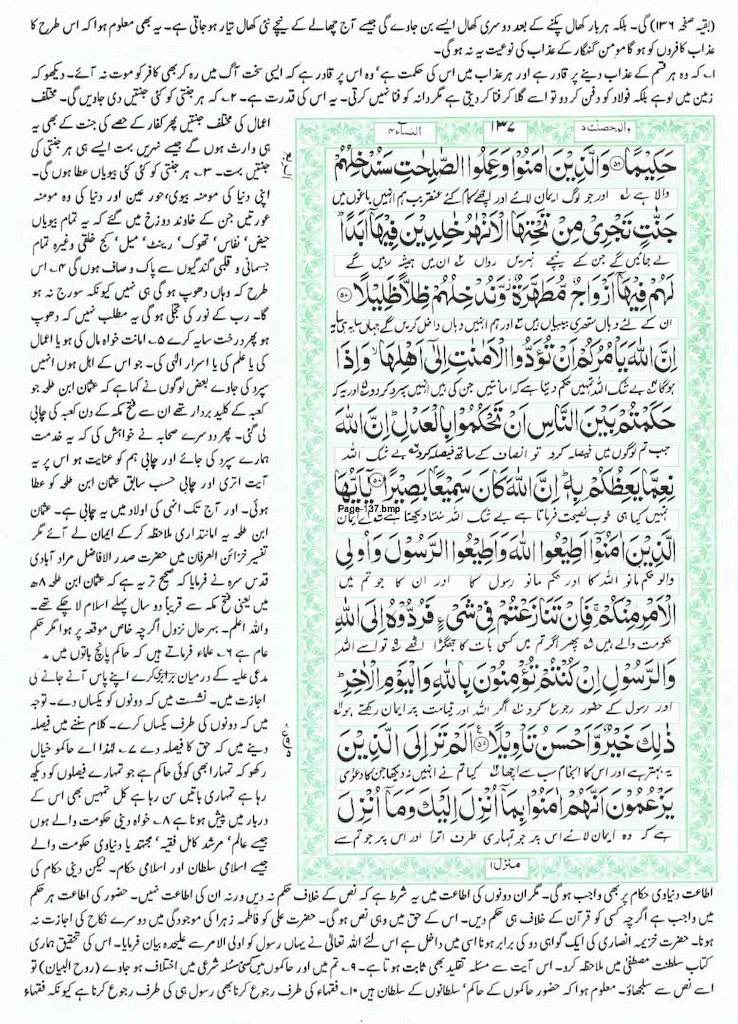 (بقیہ صفحہ ۱۳۶) گی۔ بلکہ ہر بار کھال پکنے کے بعد دوسری کھال ایسے بن جاوے گی جیسے آج چھالے کے نیچے نئی کھال تیار ہو جاتی ہے۔ یہ بھی معلوم ہوا کہ اس طرح کا
عذاب کافروں کو ہو گا مومن گنہگار کے عذاب کی نوعیت یہ نہ ہو گی۔
۱۔ کہ وہ ہر قسم کے عذاب دینے پر قادر ہے اور ہر عذاب میں اس کی حکمت ہے' وہ اس پر قادر ہے کہ ایسی سخت آگ میں رہ کر بھی کافر کو موت نہ آئے۔ دیکھو کہ
زمین میں لوہے بلکہ فولاد کو دفن کر دو تو اسے گلا کر فنا کر دیتی ہے مگر دانہ کو فنا نہیں کرتی۔ یہ اس کی قدرت ہے۔ ۲۔ کہ ہر جنتی کو کئی جنتیں دی جاویں گی۔ مختلف
اعمال کی مختلف جنتیں پھر کفار کے حصے کی جنت کے بھی یہ
ہی وارث ہوں گے جیسے نہریں بہت ایسے ہی ہر جنتی کی
جنتیں بہت۔ ۳۔ ہر جنتی کو کئی کئی بیویاں عطا ہوں گی۔
اپنی دنیا کی مومنہ بیوی' حور عین اور دنیا کی وہ مومنہ
عورتیں جن کے خاوند دوزخ میں گئے کہ یہ تمام بیویاں
حیض' نفاس' تھوک' رینٹ' میل' کج خلقی وغیرہ تمام
جسمانی و قلبی گندگیوں سے پاک و صاف ہوں گی ۴۔ اس
طرح کہ وہاں دھوپ ہو گی ہی نہیں کیونکہ سورج نہ ہو
گا۔ رب کے نور کی تجلی ہو گی یہ مطلب نہیں کہ دھوپ
ہو پھر درخت سایہ کرے ۵۔ امانت خواہ مال کی ہو یا اعمال
کی یا علم کی یا اسرار الٰہی کی۔ جو اس کے اہل ہوں انہیں
سپرد کی جاوے بعض لوگوں نے کہا ہے کہ عثمان ابن طلحہ جو
کعبہ کے کلید بردار تھے ان سے فتح مکہ کے دن کعبہ کی چابی
لی گئی۔ پھر دوسرے صحابہ نے خواہش کی کہ یہ خدمت
ہمارے سپرد کی جائے اور چابی ہم کو عنایت ہو اس پر یہ
آیت اتری اور چابی حسب سابق عثمان ابن طلحہ کو عطا
ہوئی۔ اور آج تک انہی کی اولاد میں یہ چابی ہے۔ عثمان
ابن طلحہ یہ امانتداری ملاحظہ کر کے ایمان لے آئے مگر
تفسیر خزائن العرفان میں حضرت صدر الافاضل مراد آبادی
قدس سرہ نے فرمایا کہ صحیح تر یہ ہے کہ عثمان ابن طلحہ ۸ھ
میں یعنی فتح مکہ سے قریباً دو سال پہلے اسلام لا چکے تھے۔
واللہ اعلم۔ بہر حال نزول اگرچہ خاص موقعہ پر ہوا مگر حکم
عام ہے ۶۔ علماء فرماتے ہیں کہ حاکم پانچ باتوں میں مد
مدعی علیہ کے درمیان برابری کرے اپنے پاس آنے جانے کی
اجازت میں۔ نشست میں کہ دونوں کو یکساں دے۔ توجہ
میں کہ دونوں کی طرف یکساں کرے۔ کلام سننے میں فیصلہ
دینے میں کہ حق کا فیصلہ دے ۷۔ لہٰذا اے حاکمو خیال
رکھو کہ تمہارا بھی کوئی حاکم ہے جو تمہارے فیصلوں کو دیکھ
رہا ہے تمہاری باتیں سن رہا ہے کل تمہیں بھی اس کے
دربار میں پیش ہونا ہے ۸۔ خواہ دینی حکومت والے ہوں
جیسے عالم' مرشد کامل فقیہ' مجتہد یا دنیاوی حکومت والے
جیسے اسلامی سلطان اور اسلامی حکام۔ لیکن دینی حکام کی
والمحصنت ۵ ۱۳۷ النسآء ۴
حَكِيْمًا ۝ وَالَّذِيْنَ اٰمَنُوْا وَعَمِلُوا الصّٰلِحٰتِ سَنُدْخِلُهُمْ
والا ہے اور جو لوگ ایمان لائے اور اچھے کام کئے عنقریب ہم انہیں باغوں میں
جَنّٰتٍ تَجْرِيْ مِنْ تَحْتِهَا الْاَنْهٰرُ خٰلِدِيْنَ فِيْهَاۤ اَبَدًا
لے جائیں گے جن کے نیچے نہریں رواں ان میں ہمیشہ رہیں گے
لَهُمْ فِيْهَاۤ اَزْوَاجٌ مُّطَهَّرَةٌ وَّنُدْخِلُهُمْ ظِلًّا ظَلِيْلًا ۝
ان کے لئے وہاں ستھری بیبیاں ہیں اور ہم انہیں وہاں داخل کریں گے جہاں سایہ ہی سایہ
اِنَّ اللّٰهَ يَاْمُرُكُمْ اَنْ تُؤَدُّوا الْاَمٰنٰتِ اِلٰۤى اَهْلِهَا وَاِذَا
ہوگا بے شک اللہ تمہیں حکم دیتا ہے کہ امانتیں جن کی ہیں انہیں سپرد کرو اور یہ کہ
حَكَمْتُمْ بَيْنَ النَّاسِ اَنْ تَحْكُمُوْا بِالْعَدْلِ اِنَّ اللّٰهَ
جب تم لوگوں میں فیصلہ کرو تو انصاف کے ساتھ فیصلہ کرو بے شک اللہ
نِعِمَّا يَعِظُكُمْ بِهٖ اِنَّ اللّٰهَ كَانَ سَمِيْعًا بَصِيْرًا ۝ يٰۤاَيُّهَا
تمہیں کیا ہی خوب نصیحت فرماتا ہے بے شک اللہ سنتا دیکھتا ہے اے ایمان
Page-137.bmp
الَّذِيْنَ اٰمَنُوْۤا اَطِيْعُوا اللّٰهَ وَاَطِيْعُوا الرَّسُوْلَ وَاُولِى
والو حکم مانو اللہ کا اور حکم مانو رسول کا اور ان کا جو تم میں
الْاَمْرِ مِنْكُمْ فَاِنْ تَنَازَعْتُمْ فِيْ شَيْءٍ فَرُدُّوْهُ اِلَى اللّٰهِ
حکومت والے ہیں پھر اگر تم میں کسی بات کا جھگڑا اٹھے تو اسے اللہ
وَالرَّسُوْلِ اِنْ كُنْتُمْ تُؤْمِنُوْنَ بِاللّٰهِ وَالْيَوْمِ الْاٰخِرِ
اور رسول کے حضور رجوع کرو اگر اللہ اور قیامت پر ایمان رکھتے ہو
ذٰلِكَ خَيْرٌ وَّاَحْسَنُ تَاْوِيْلًا ۝ اَلَمْ تَرَ اِلَى الَّذِيْنَ
یہ بہتر ہے اور اس کا انجام سب سے اچھا کیا تم نے انہیں نہ دیکھا جن کا دعوٰی
يَزْعُمُوْنَ اَنَّهُمْ اٰمَنُوْا بِمَاۤ اُنْزِلَ اِلَيْكَ وَمَاۤ اُنْزِلَ
ہے کہ وہ ایمان لائے اس پر جو تمہاری طرف اترا اور اس پر جو تم سے
منزل ۱
اطاعت دنیاوی حکام پر بھی واجب ہو گی۔ مگر ان دونوں کی اطاعت میں یہ شرط ہے کہ نص کے خلاف حکم نہ دیں ورنہ ان کی اطاعت نہیں۔ حضور کی اطاعت ہر حکم
میں واجب ہے اگرچہ کسی کو قرآن کے خلاف ہی حکم دیں۔ اس کے حق میں وہی نص ہو گی۔ حضرت علی کو فاطمہ زہرا کی موجودگی میں دوسرے نکاح کی اجازت نہ
ہونا۔ حضرت خزیمہ انصاری کی ایک گواہی دو کی برابر ہونا اسی میں داخل ہے اس لئے اللہ تعالیٰ نے یہاں رسول کو اولی الامر سے علیحدہ بیان فرمایا۔ اس کی تحقیق ہماری
کتاب سلطنت مصطفیٰ میں ملاحظہ کرو۔ اس آیت سے مسئلہ تقلید بھی ثابت ہوتا ہے۔ ۹۔ تم میں اور حاکموں میں کسی مسئلہ شرعی میں اختلاف ہو جاوے (روح البیان) تو
اسے نص سے سلجھاؤ۔ معلوم ہوا کہ حضور حاکموں کے حاکم' سلطانوں کے سلطان ہیں ۱۰۔ فقہاء کی طرف رجوع کرنا بھی رسول ہی کی طرف رجوع کرنا ہے کیونکہ فقہاء